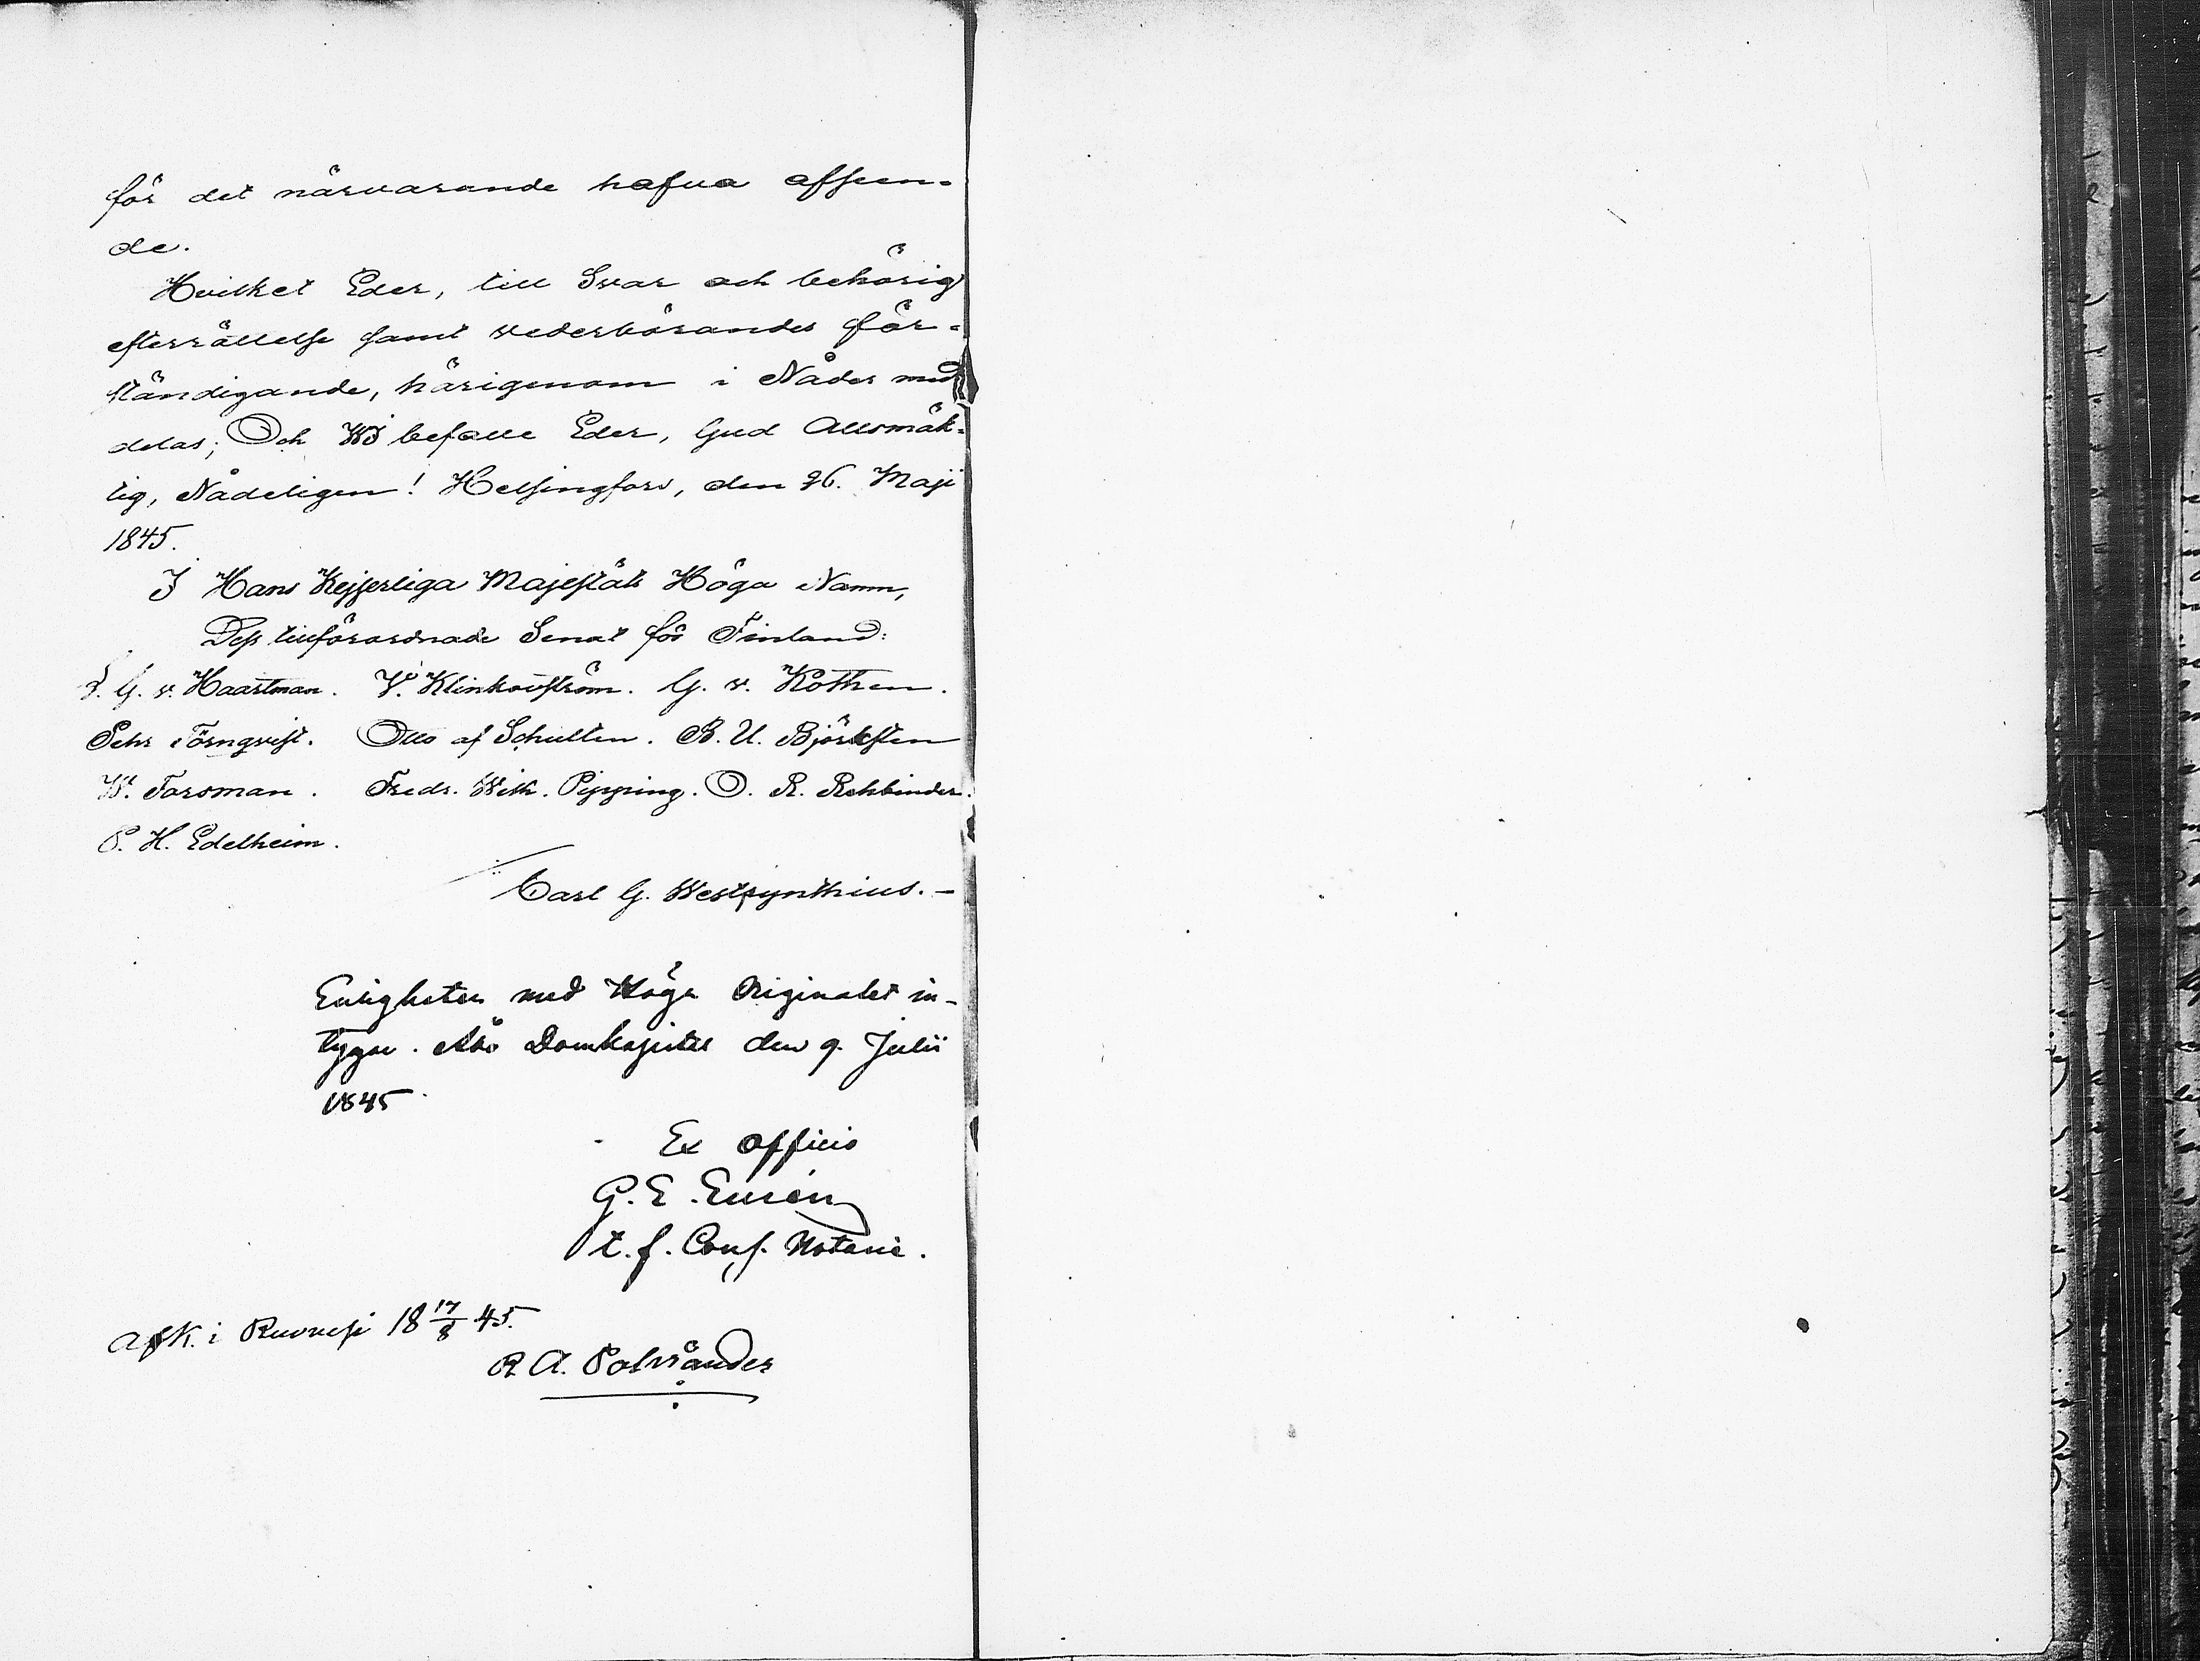 för det närvarande hafva afseen-
de.
Hvilket Eder, till Svar och behörig
efterrättelse samt vederbörandes för-
ständigande, härigenom i Nåder med-
delas; Och Wi befalle Eder, Gud Allsmäk-
tig, Nådeligen! Helsingfors, den 26. Maji
1845.
I Hans Kejserliga Majestäts Höga Namn,
Dess tillförordnade Senat för Finland:
L. G. v. Haartman. V. Klinkowström. G. v. Kothen.
Pehr Törnqvist. Otto af Schulten. B. U. Björksten
W. Forsman. Fredr. Wilh. Pipping. O. R. Rehbinder.
P. H. Edelheim.
Carl G. Westzynthius. -
Enligheten med Höga Originalet in-
tygar. Åbo Domkapitel den 9. Julii
1845.
Ex officio
G. E. Eurén
t. f. Cons. Notarie.
Afk. i Ruovesi 18 17/8 45.
R A. Polviander